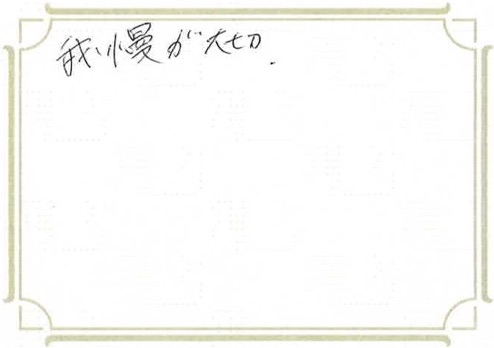 我慢が大切.